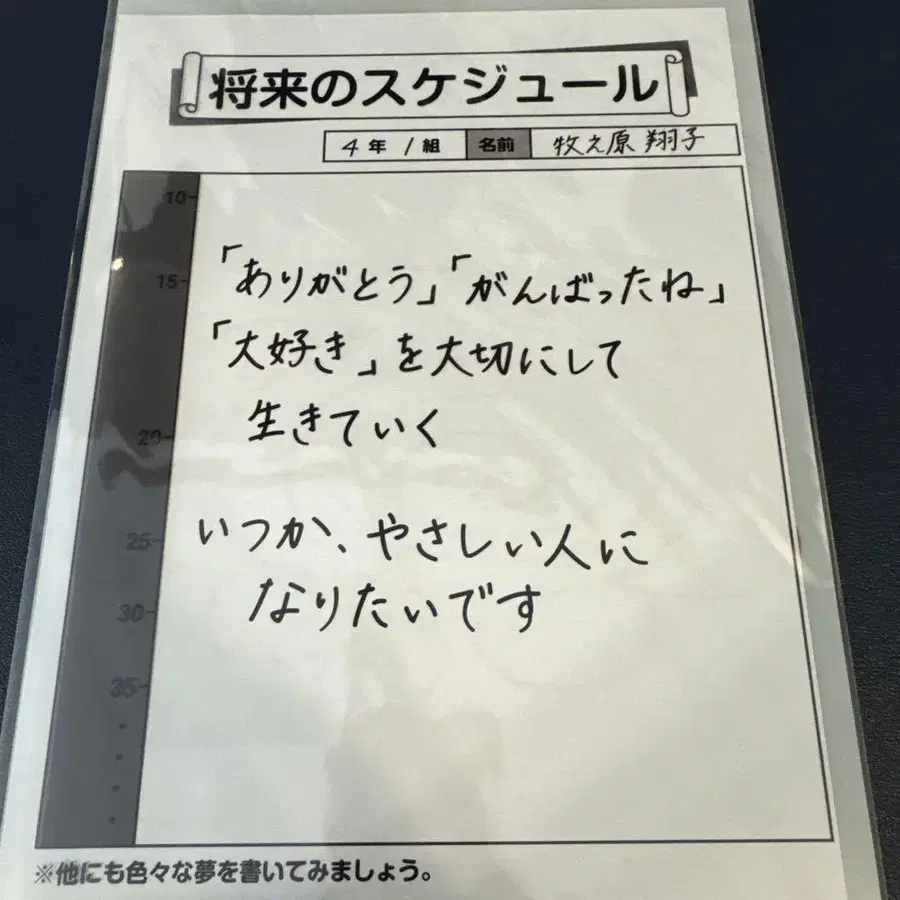 将来のスケジュール
4年 1組 名前 牧之原 翔子
10
15
「ありがとう」「がんばったね」
「大好き」を大切にして
20
生きていく
25
いつか、やさしい人に
30
なりたいです
35
※他にも色々な夢を書いてみましょう。